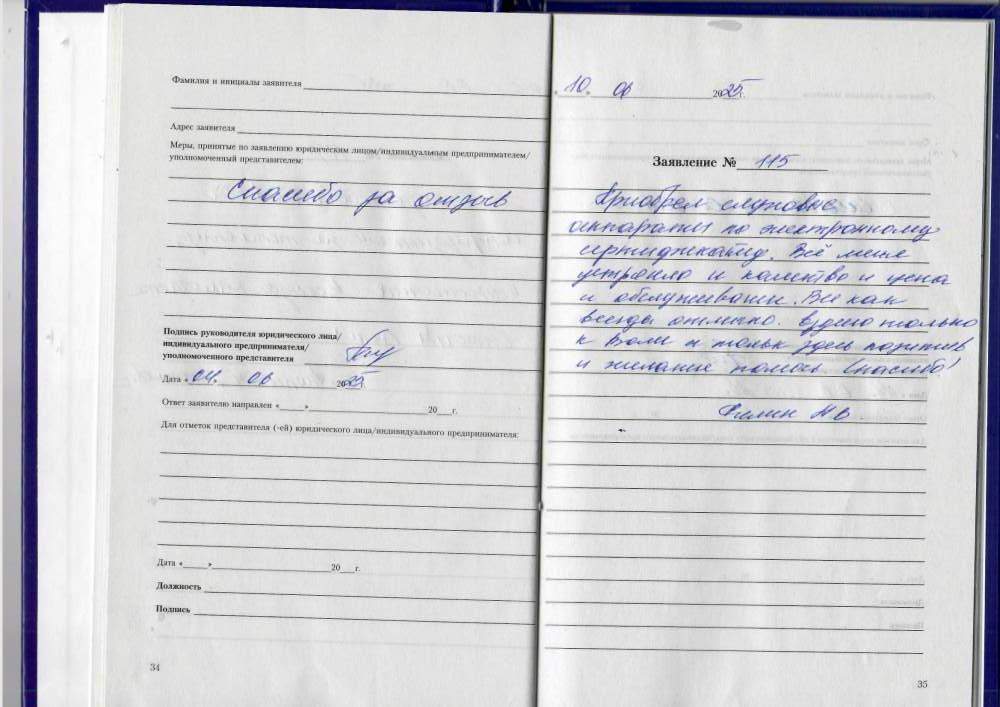 Фамилия и инициалы заявителя
Адрес заявителя
Меры, принятые по заявлению юридическим лицом/индивидуальным предпринимателем/
уполномоченный представителем:
Спасибо за отзыв
Подпись руководителя юридического лица/
индивидуального предпринимателя/
уполномоченного представителя
Дата «04» 06 2025г.
Ответ заявителю направлен «____»____ 20__г.
Для отметок представителя (-ей) юридического лица/индивидуального предпринимателя:
Дата «____»____ 20__г.
Должность
Подпись
34
10. 06 2025г.
Заявление № 115
Приобрел слуховые
аппараты по электронному
сертификату. Всё меня
устроило и качество и цена
и обслуживании. Всё как
всегда отлично. только
к Вам и тольк здесь позитив
и желание помочь. Спасибо!
Филин Н В.
35